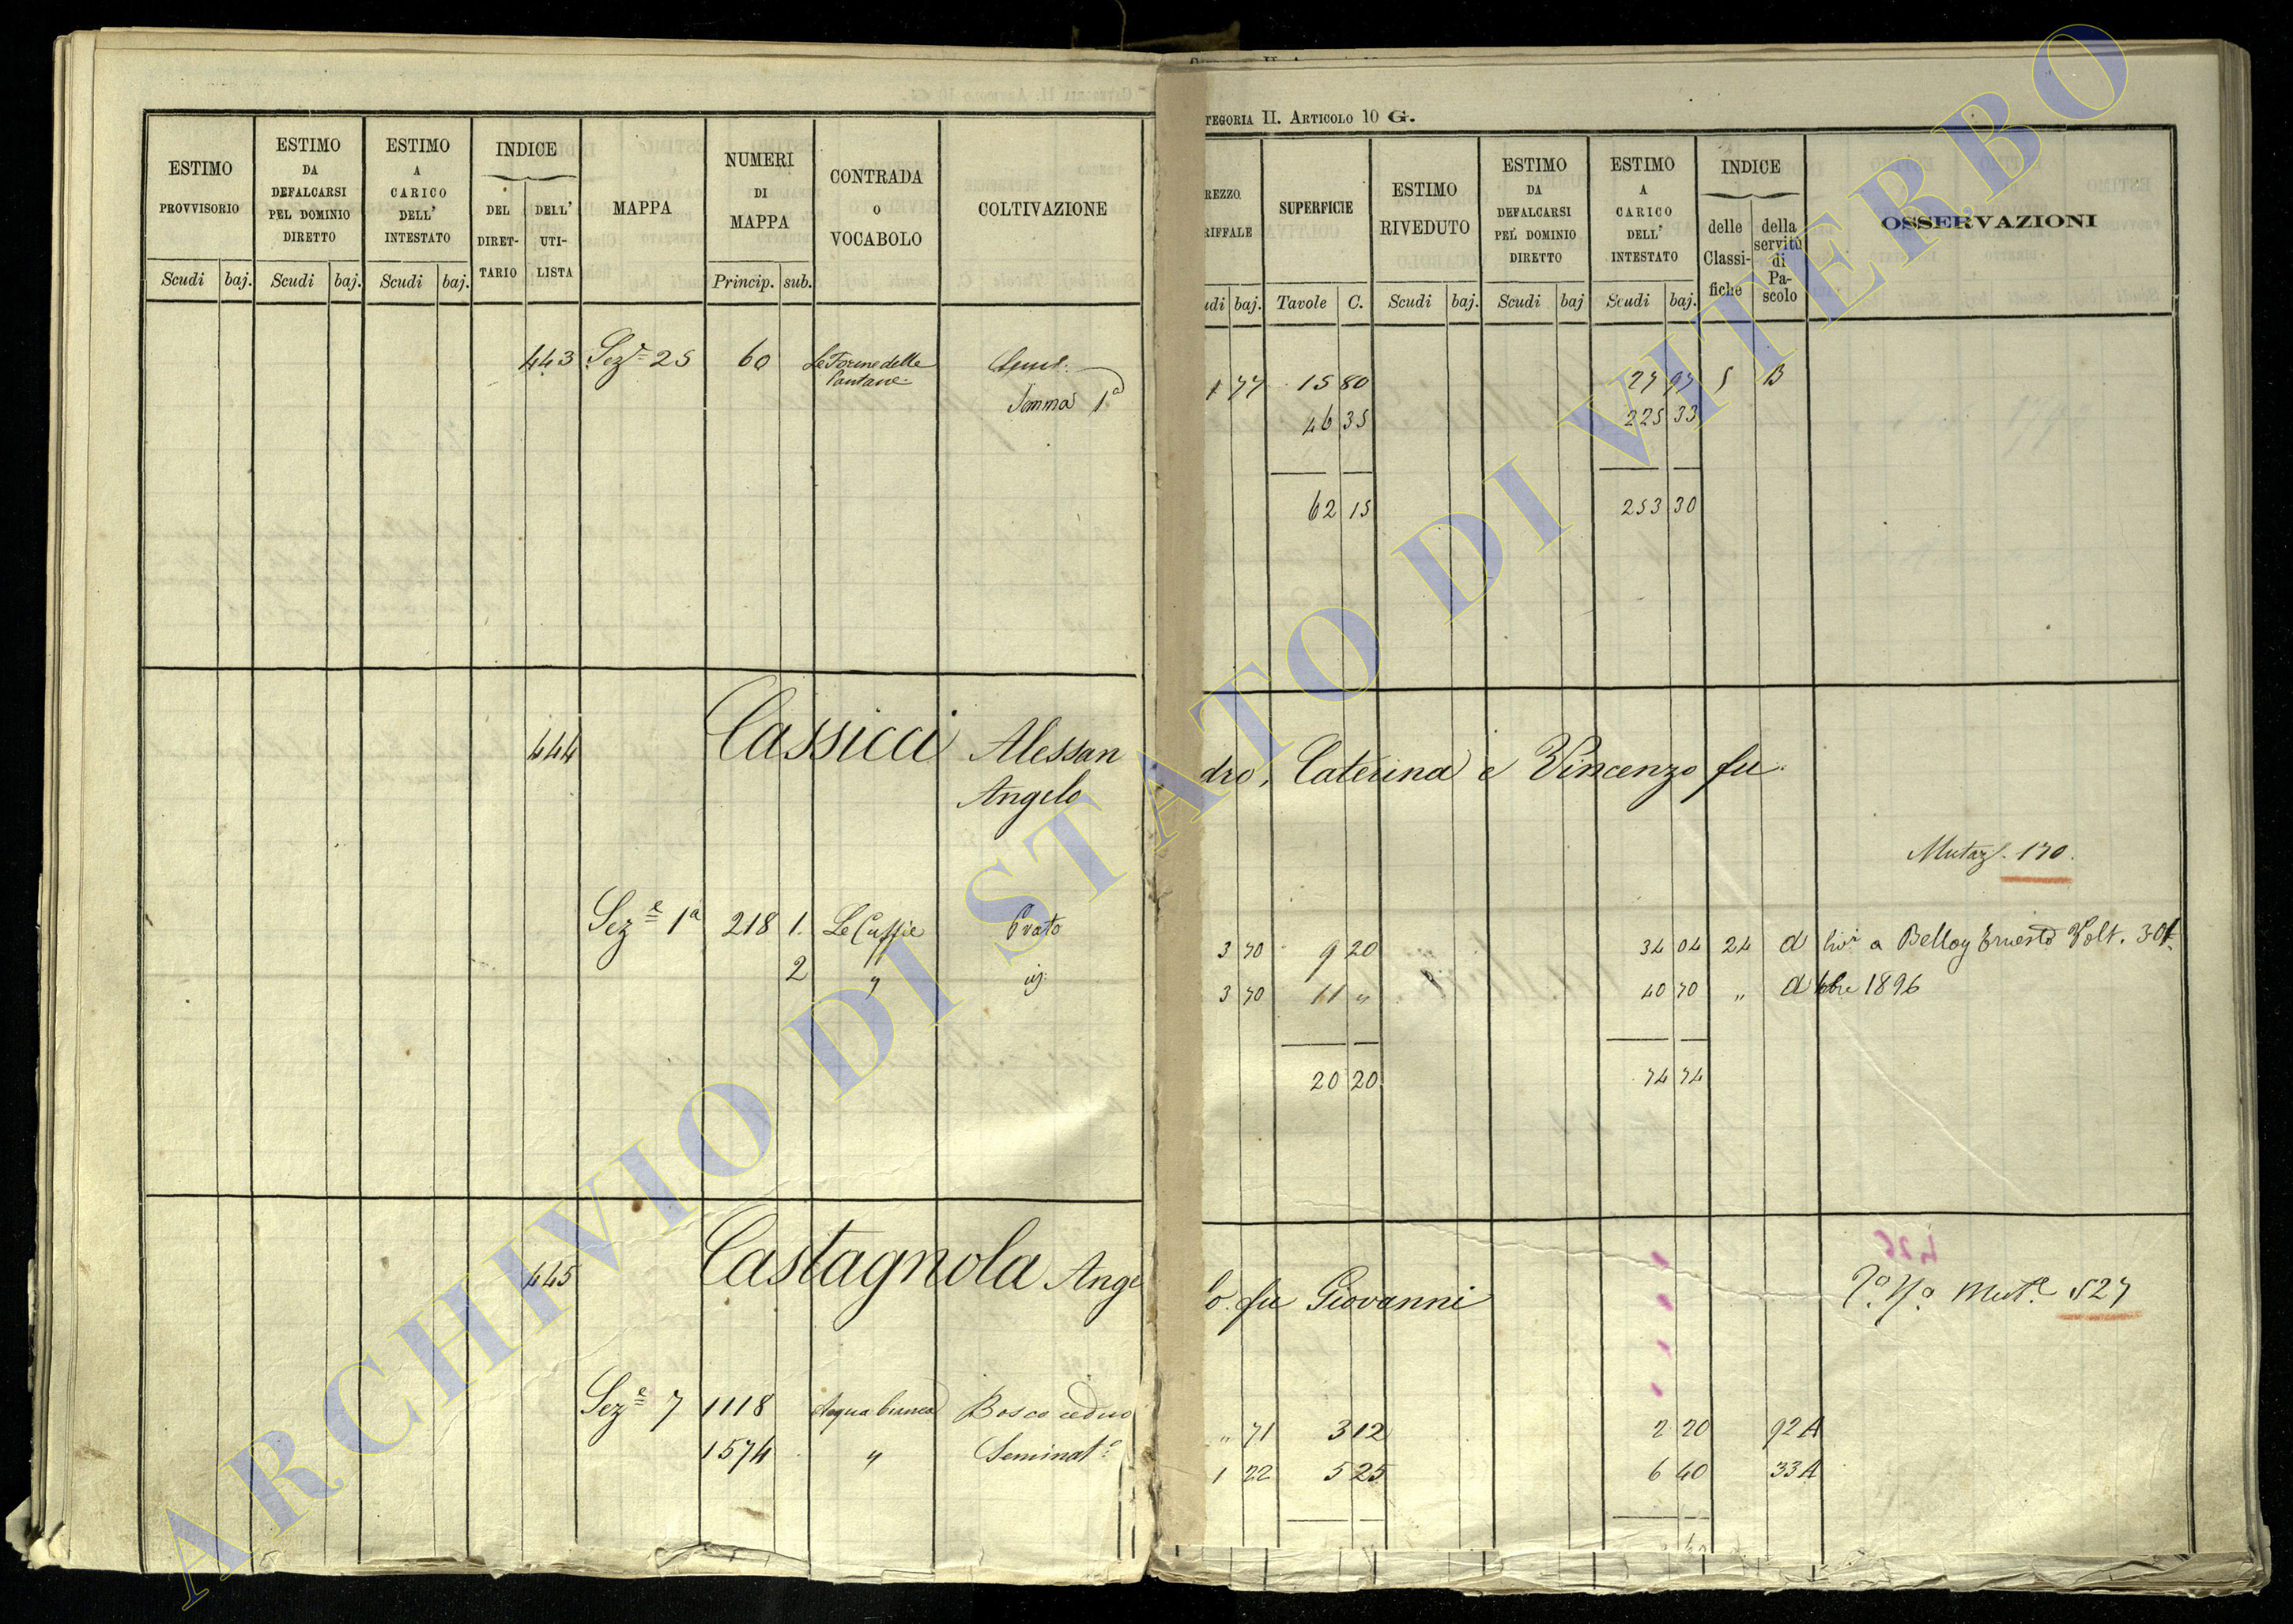 TEGORIA II. ARTICOLO 10 G.
ESTIMO PROVVISORIO
Scudi baj.
ESTIMO DA DEFALCARSI PEL DOMINIO DIRETTO
Scudi baj.
ESTIMO A CARICO DELL' INTESTATO
Scudi baj.
INDICE
DEL DIRET-TARIO
DELL' UTI-LISTA
MAPPA
NUMERI DI MAPPA
Princip. sub.
CONTRADA o VOCABOLO
COLTIVAZIONE
REZZO RIFFALE
udi baj.
SUPERFICIE
Tavole C.
ESTIMO RIVEDUTO
Scudi baj.
ESTIMO DA DEFALCARSI PEL DOMINIO DIRETTO
Scudi baj
ESTIMO A CARICO DELL' INTESTATO
Scudi baj.
INDICE
delle Classi-fiche
della servitù di Pa-scolo
OSSERVAZIONI
443 Sez.e 25 60 Le Forme delle Pantane Semi.
Somma 1a
1 77 15 80 27 97 5 B
46 35 225 33
62 15 253 30
444 Cassicci Alessan
dro, Caterina e Vincenzo fu
Angelo
Mutaz. 170.
Sez.e 1a 218 1. Le Cuffie Prato 3 70 9 20 34 04 24 d a Belloy Ernesto Volt. 301
2 " id. 3 70 11 " 40 70 " d 1896
20 20 74 74
445 Castagnola Ange
lo fu Giovanni
426
Mut.e 527
Sez.e 7 1118 Acqua bianca Bosco ceduo " 71 3 12 2 20 92 A
1574 " Seminat.o 1 22 5 25 6 40 33 A
ARCHIVIO DI STATO DI VITERBO